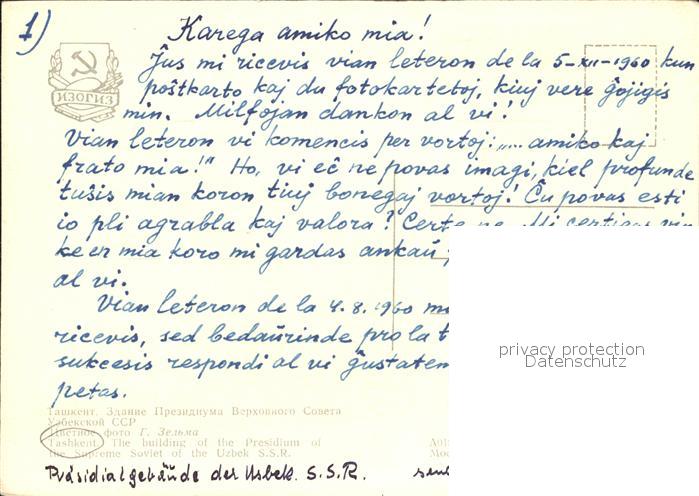 1)
Karega amiko mia!
Ĵus mi ricevis vian leteron de la 5-XII-1960 kun
poŝtkarto kaj du fotokartetoj, kiuj vere ĝojigis
min. Milfojan dankon al vi!
ИЗОГИЗ
Vian leteron vi komencis per vortoj: „.... amiko kaj
frato mia!" Ho, vi eĉ ne povas imagi, kiel profunde
tuŝis mian koron tiuj bonegaj vortoj! Ĉu povas esti
io pli agrabla kaj valora? Certe ne. Mi certigas vin
ke en mia koro mi gardas ankaŭ
al vi.
Vian leteron de la 4.8.1960 m
ricevis, sed bedaŭrinde pro la t
sukcesis respondi al vi ĝustatem
petas.
privacy protection
Datenschutz
Ташкент. Здание Президиума Верховного Совета
Узбекской ССР
Цветное фото Г. Зельма
Tashkent. The building of the Presidium of
the Supreme Soviet of the Uzbek S.S.R.
Präsidialgebäude der Usbek. S.S.R.